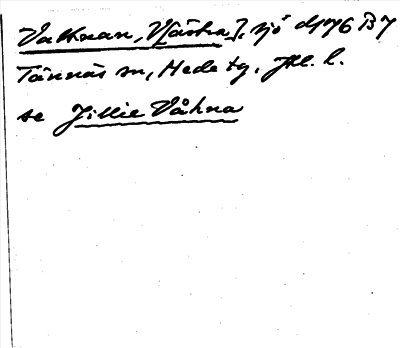 Vattnan, V[ästra], sjö d176 B7
Tännäs sn, Hede tg, Jtl. l.
se Jillie Våhna